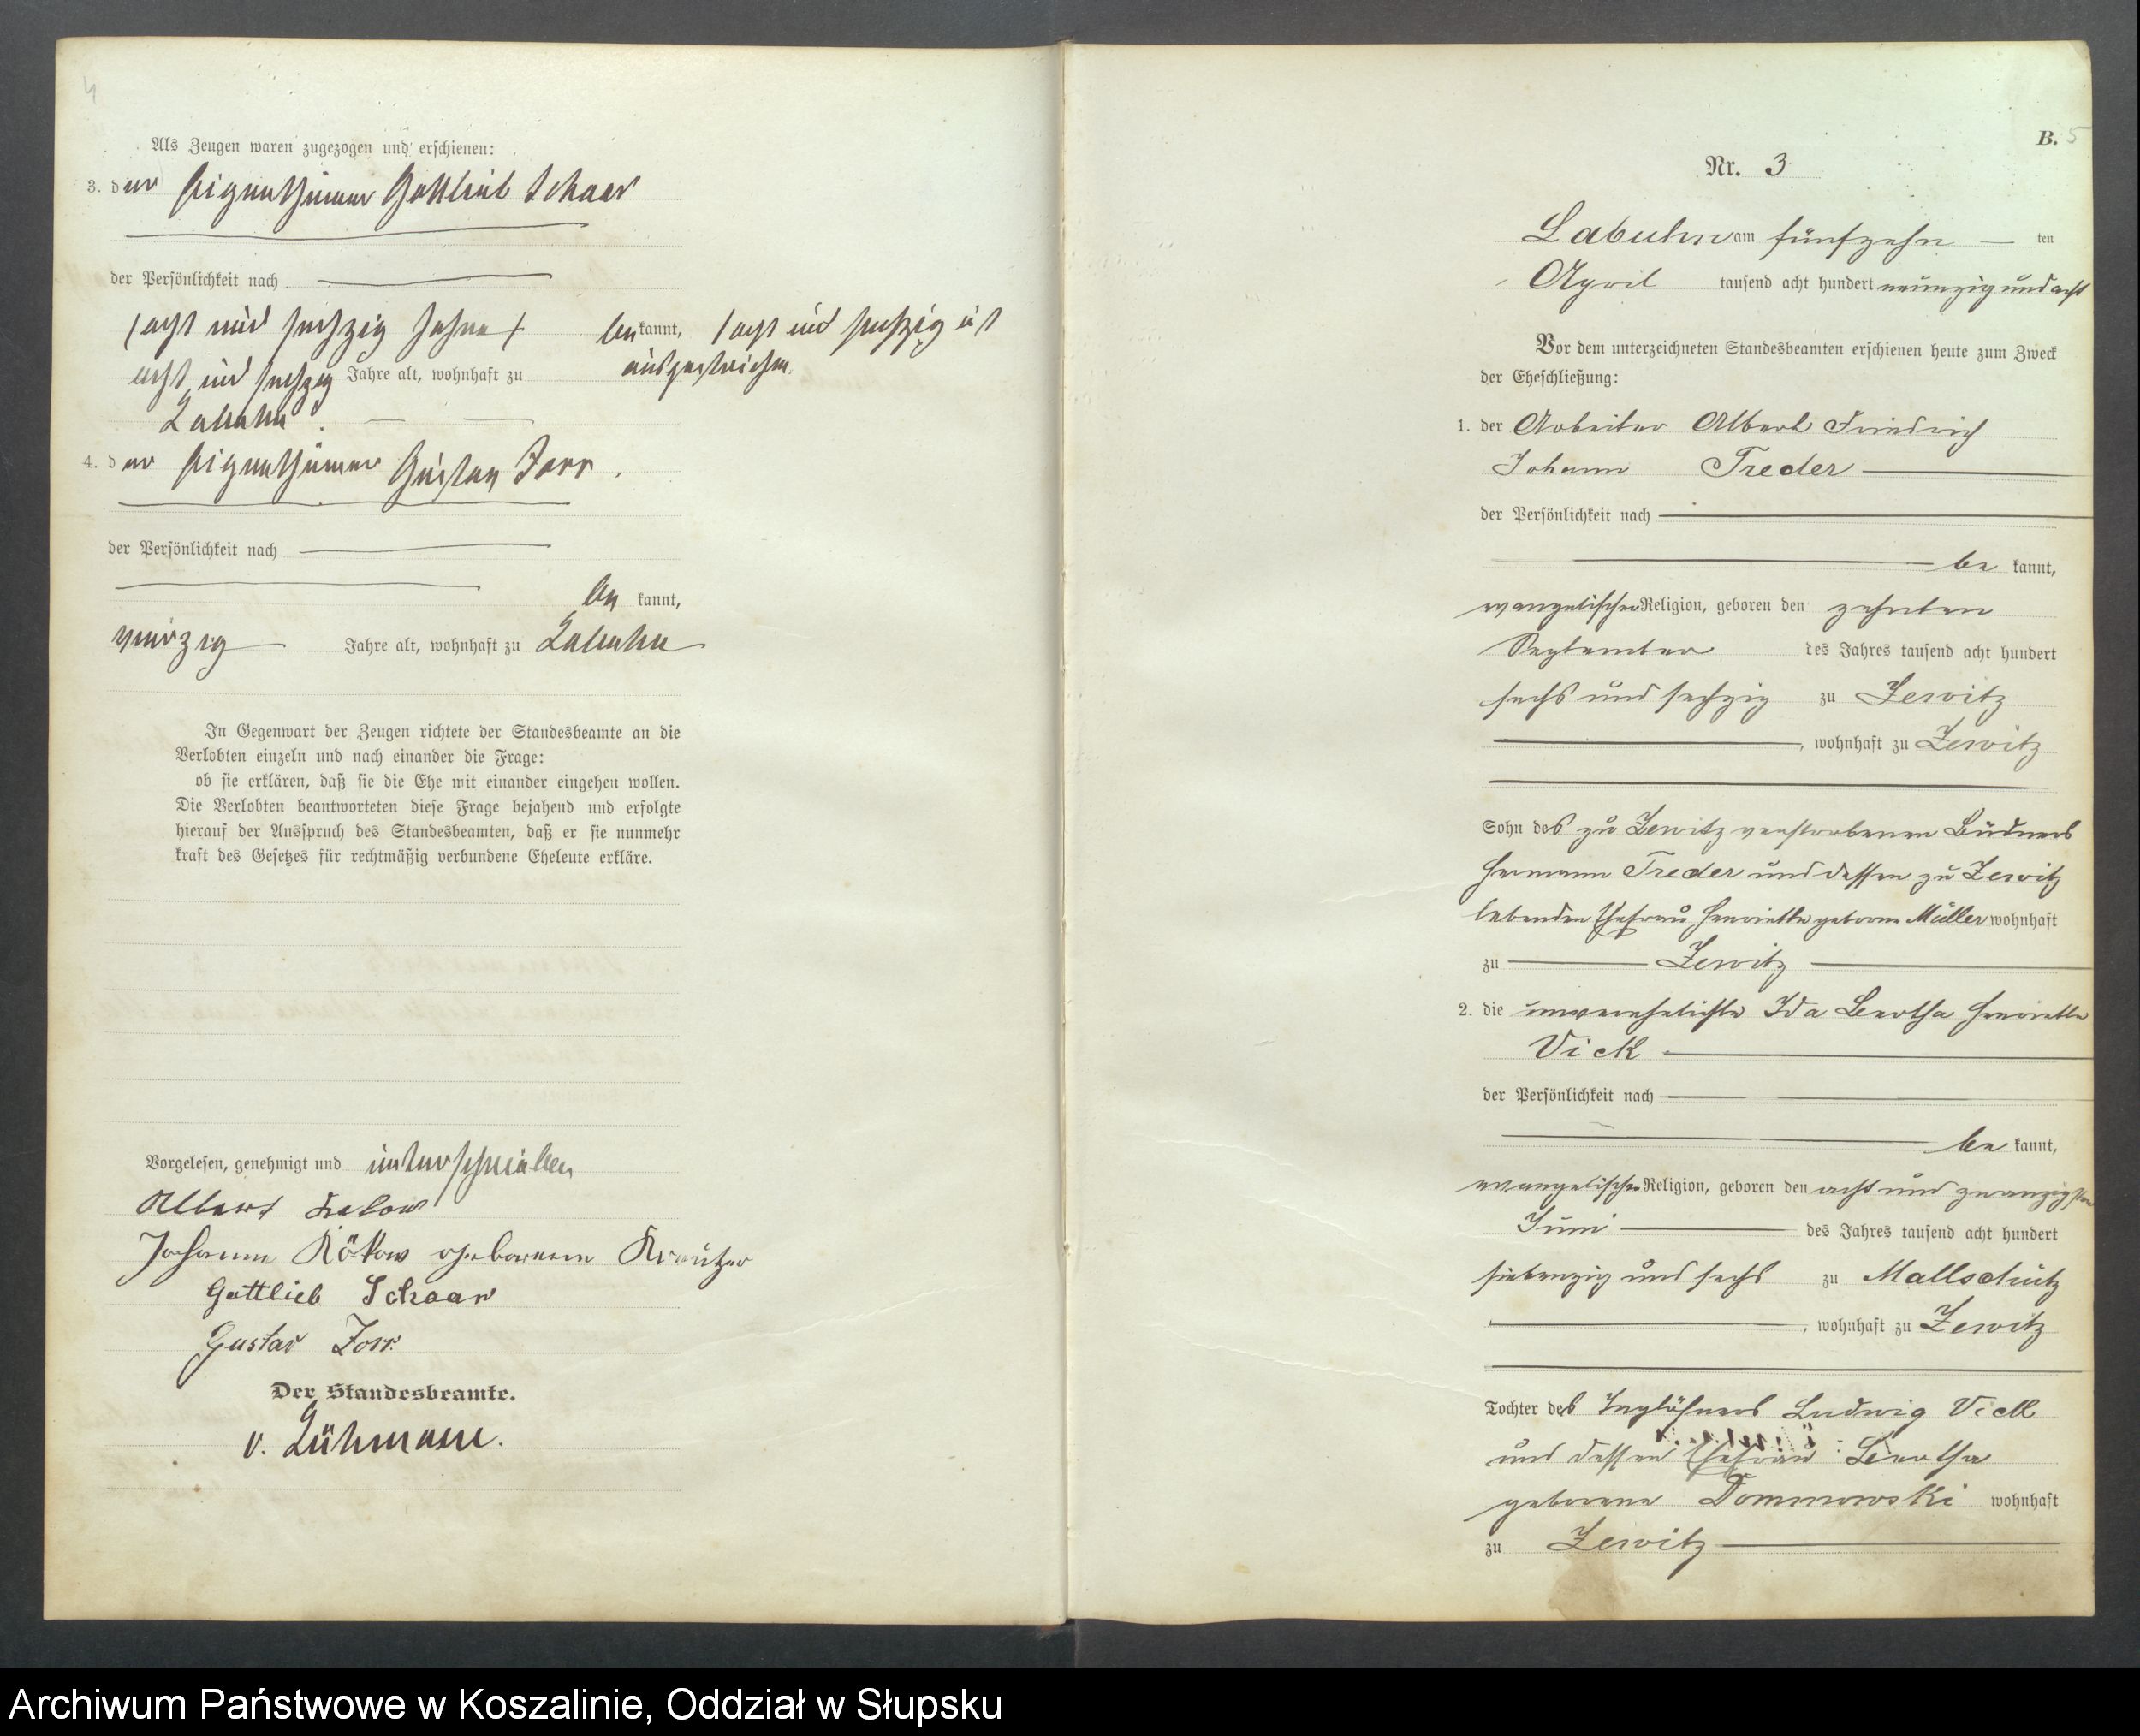 4
Als Zeugen waren zugezogen und erschienen:
3. der Eigenthümer Gottlieb Schaar
der Persönlichkeit nach
(acht und sechzig Jahre)
bekannt, (acht und sechzig ist
ausgestrichen.
acht und sechzig Jahre alt, wohnhaft zu
Labuhn.
4. der Eigenthümer Gustav Zorr.
der Persönlichkeit nach
be kannt,
vierzig Jahre alt, wohnhaft zu Labuhn
In Gegenwart der Zeugen richtete der Standesbeamte an die
Verlobten einzeln und nach einander die Frage:
ob sie erklären, daß sie die Ehe mit einander eingehen wollen.
Die Verlobten beantworteten diese Frage bejahend und erfolgte
hierauf der Ausspruch des Standesbeamten, daß er sie nunmehr
kraft des Gesetzes für rechtmäßig verbundene Eheleute erkläre.
Vorgelesen, genehmigt und unterschrieben
Albert
Johanne Rökow geborene Kreutzer
Gottlieb Schaar
Gustav Zorr.
Der Standesbeamte.
v. Lühmann.
B. 5
Nr. 3
Labuhn am fünfzehn ten
April tausend acht hundert neunzig und acht
Vor dem unterzeichneten Standesbeamten erschienen heute zum Zweck
der Eheschließung:
1. der Arbeiter Albert Friedrich
Johann Treder
der Persönlichkeit nach
be kannt,
evangelischer Religion, geboren den zehnten
September des Jahres tausend acht hundert
sechs und sechzig zu Zewitz
, wohnhaft zu Zewitz
Sohn des zu Zewitz verstorbenen Büdners
Hermann Treder und dessen zu Zewitz
lebenden Ehefrau Henriette geborne Müller wohnhaft
zu Zewitz
2. die unverehelichte Ida Bertha Henriette
Vick
der Persönlichkeit nach
be kannt,
evangelischer Religion, geboren den acht und zwanzigsten
Juni des Jahres tausend acht hundert
siebenzig und sechs zu Mallschütz
, wohnhaft zu Zewitz
Tochter des Taglöhners Ludwig Vick
und dessen Ehefrau Bertha
geborene Dommowski wohnhaft
zu Zewitz
Archiwum Państwowe w Koszalinie, Oddział w Słupsku